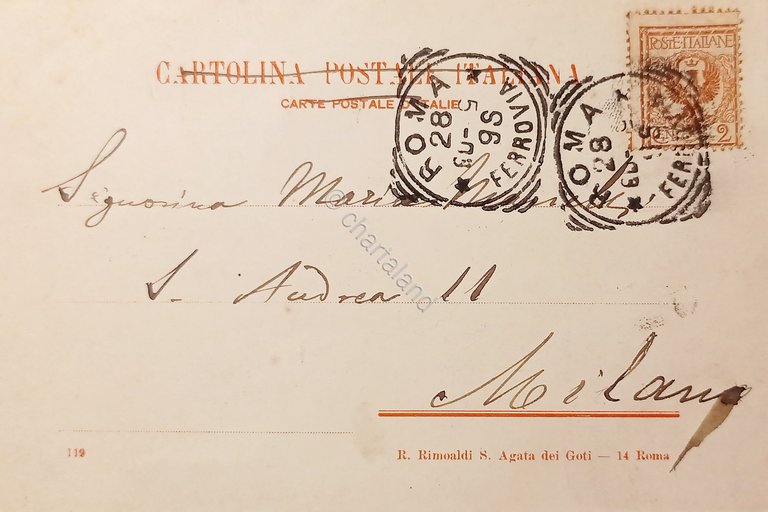 POSTE·ITALIANE
2
CARTOLINA POSTALE ITALIANA
CARTE POSTALE D'ITALIE
ROMA
28
5-03
9S
FERROVIA
ROMA
28
Signorina Maria
© chartaland
S. Andrea 11
Milano
119
R. Rimoaldi S. Agata dei Goti — 14 Roma